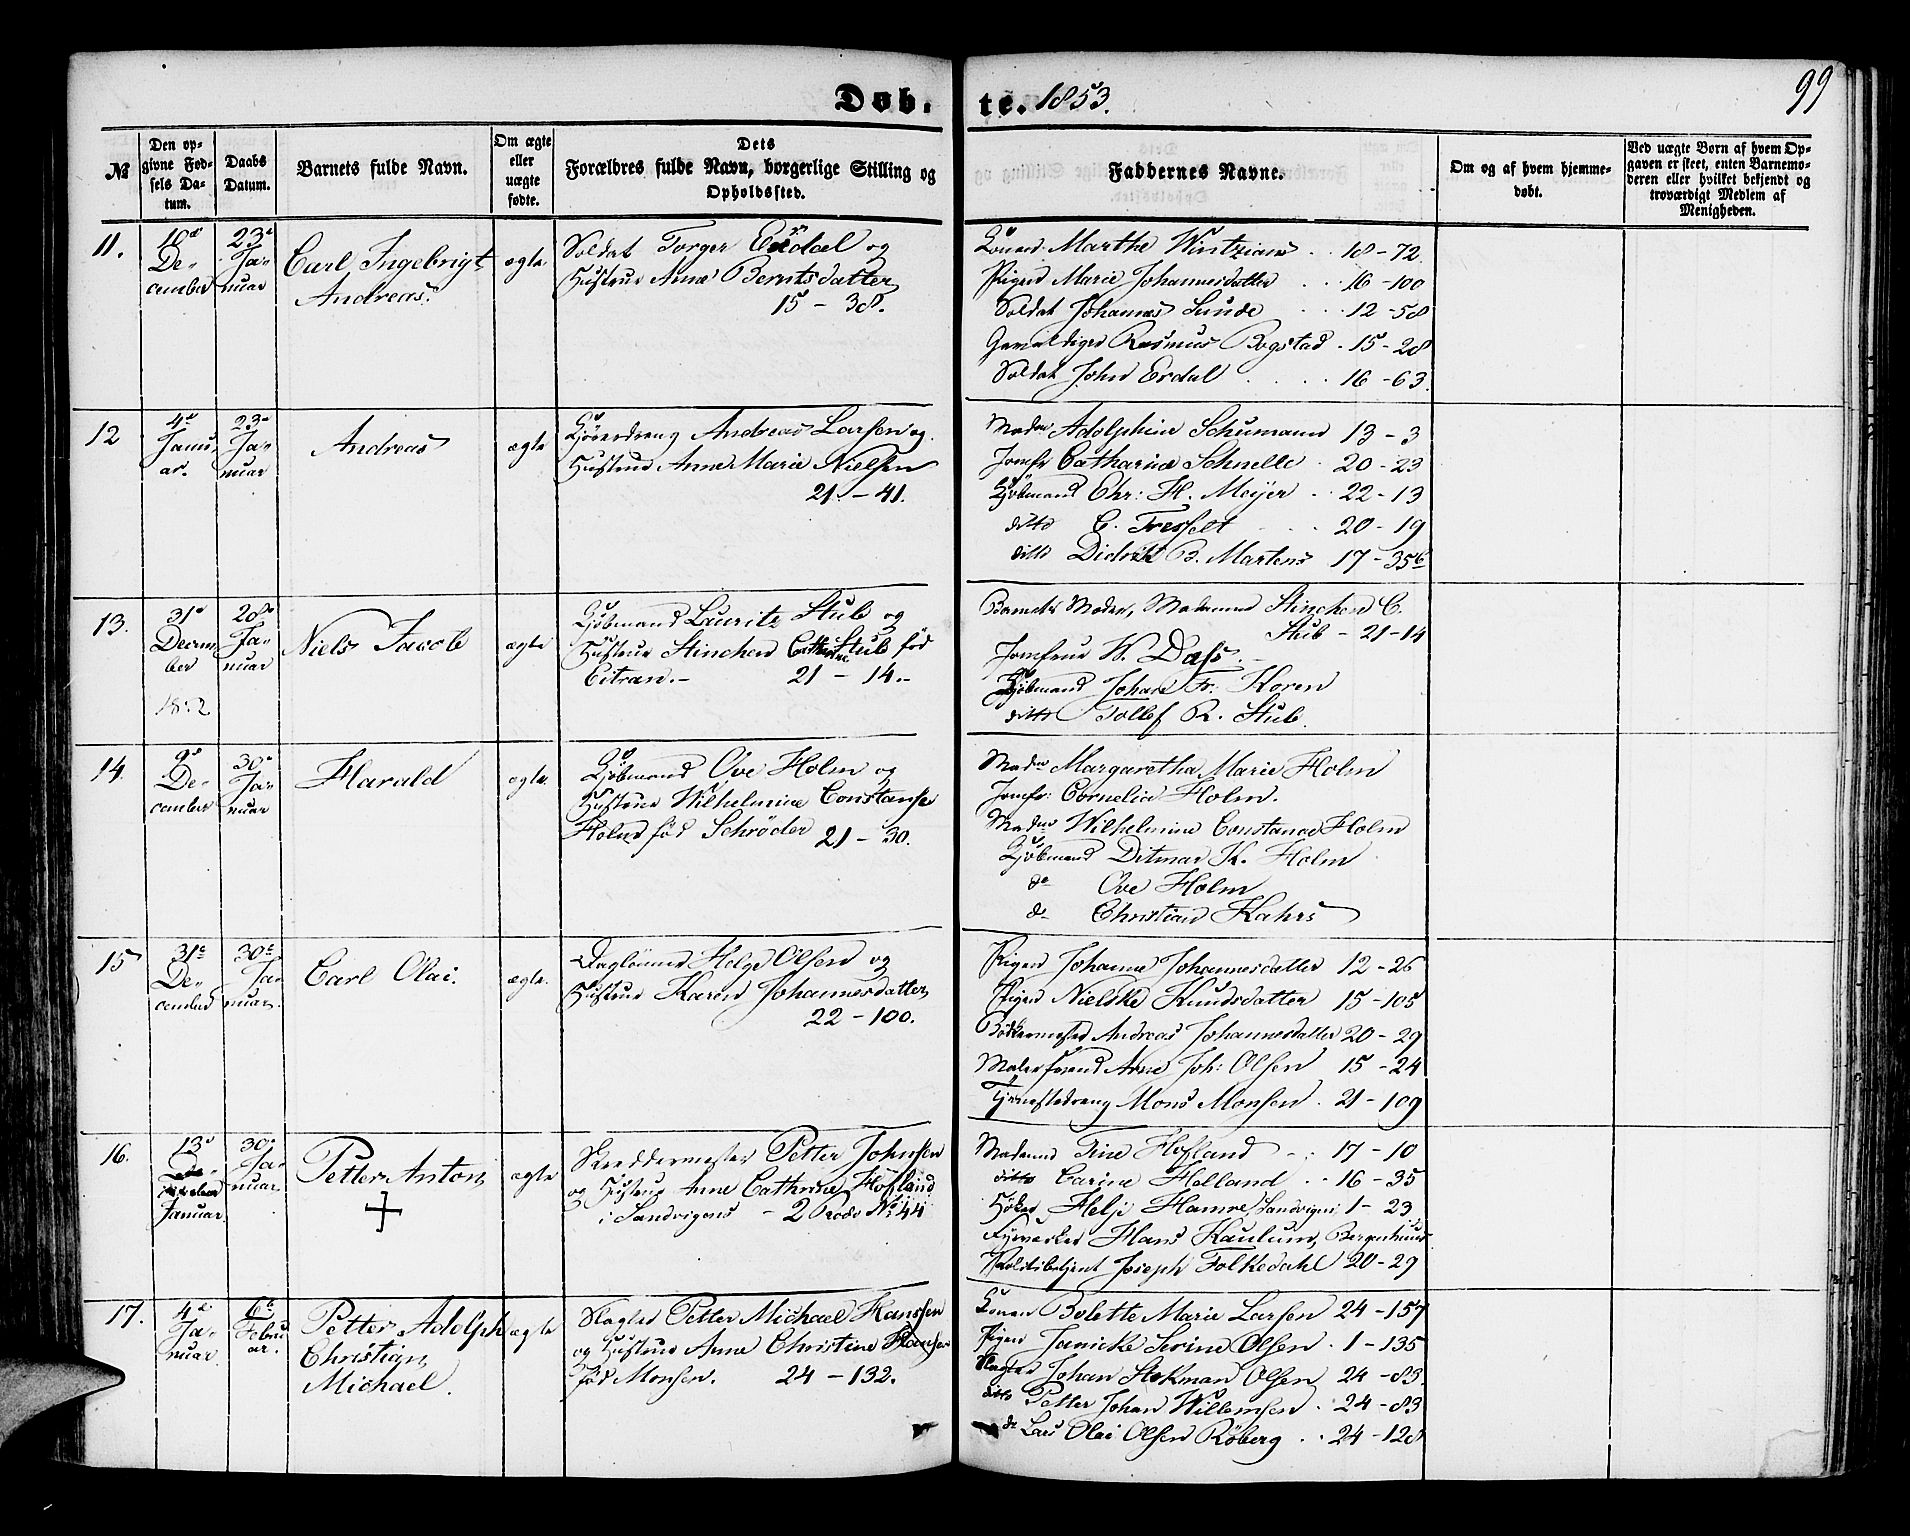 Døb.
te. 1853.
99
№
Den op-
givne Fød-
sels Da-
tum.
Daabs
Datum.
Barnets fulde Navn.
Om ægte
eller
uægte
fødte.
Dets
Forældres fulde Navn, borgerlige Stilling og
Opholdssted.
Faddernes Navne.
Om og af hvem hjemme-
døbt.
Ved uægte Børn af hvem Op-
gaven er skeet, enten Barnemo-
deren eller hvilket bekjendt og
troværdigt Medlem af
Menigheden.
11.
10de
De-
cember
23de
Ja-
nuar
Carl Ingebrigt
Andreas.
ægte
Soldat Torger Erdal og
Hustrue Anne Berntsdatter
15 - 38.
Konen: Marthe Wintziane 18 - 72.
Pigen Marie Johannesdatter 16 - 100
Soldat Johannes Lunde 12 - 58
Rasmus Bogstad 15 - 28
Soldat John Erdal 16 - 63.
12
4de
Janu-
ar.
23de
Ja-
nuar
Andreas
ægte
Andreas Larsen og
Hustrue Anne Marie Nielsen
21 - 41.
Madme Adolphine Schumann 13 - 3
Jomfr Catharine Schnelle 20 - 23
Kjøbmand Chr: H. Meyer 22 - 13
ditto C. Tresselt 20 - 19
ditto Didrik B. Martens 17 - 35b
13.
31te
Decem-
ber
1852
28de
Ja-
nuar
Niels Jacob
ægte
Kjøbmand Lauritz Stub og
Hustrue Stinchen Cathrine Stub fød
Citran. - 21 - 14. -
Barnets Moder, Madame Stinchen C.
Stub - 21 - 14
Jomfrue W. Dass. -
Kjøbmand Johan Fr: Koren
ditto Tollef R. Stub.
14.
9de
De-
cember
30te
Ja-
nuar
Harald
ægte
Kjøbmand Ove Holm og
Hustrue Wilhelmine Constanse
Holm fød Schrøder 21 - 30.
Madme Margaretha Marie Holm
Jomfr: Cornelia Holm.
Madme Wilhelmine Constance Holm
Kjøbmand Ditmar K. Holm
do Ove Holm
do Christian Kahrs
15
31te
De-
cember
30te
Ja-
nuar.
Carl Olai.
ægte.
Daglønner Helge Olsen og
Hustrue Karen Johannesdatter
22 - 100.
Pigen Johanne Johannesdatter 12 - 26
Pigen Nielske Knudsdatter 15 - 105
Bødkermester Andreas Johannesdatter 20 - 29
Malersvend Arne Joh: Olsen 15 - 24
Tjenestedreng Mons Monsen 21 - 109
16.
13de
De-
Januar.
30te
Ja-
nuar.
Petter Anton
+
ægte
Skreddermester Petter Johnsen
og Hustrue Anne Cathrine Hofland
i Sandvigens - 2 Rode No 44
Madame Tine Hofland 17 - 10
ditto Carine Helland 16 - 35
Høker Helje Hamre, Sandvigen 1 - 23
Fyrverker Hans Kaulum, Bergenhuus
Politibetjent Joseph Folkedahl 20 - 29
17.
4de
Ja-
nuar.
6te
Febru
ar.
Petter Adolph
Christian
Michael.
ægte
Slagter Petter Michael Hansen
og Hustrue Anne Christine Hansen
fød Monsen. 24 - 132.
Konen Bolette Marie Larsen 24 - 157
Pigen Janicke Serine Olsen 1 - 135
Slagter Johan Stokman Olsen 24 - 83
ditto Petter Johan Willemsen 24 - 83
do Lars Olai Olsen Röberg 24 - 128